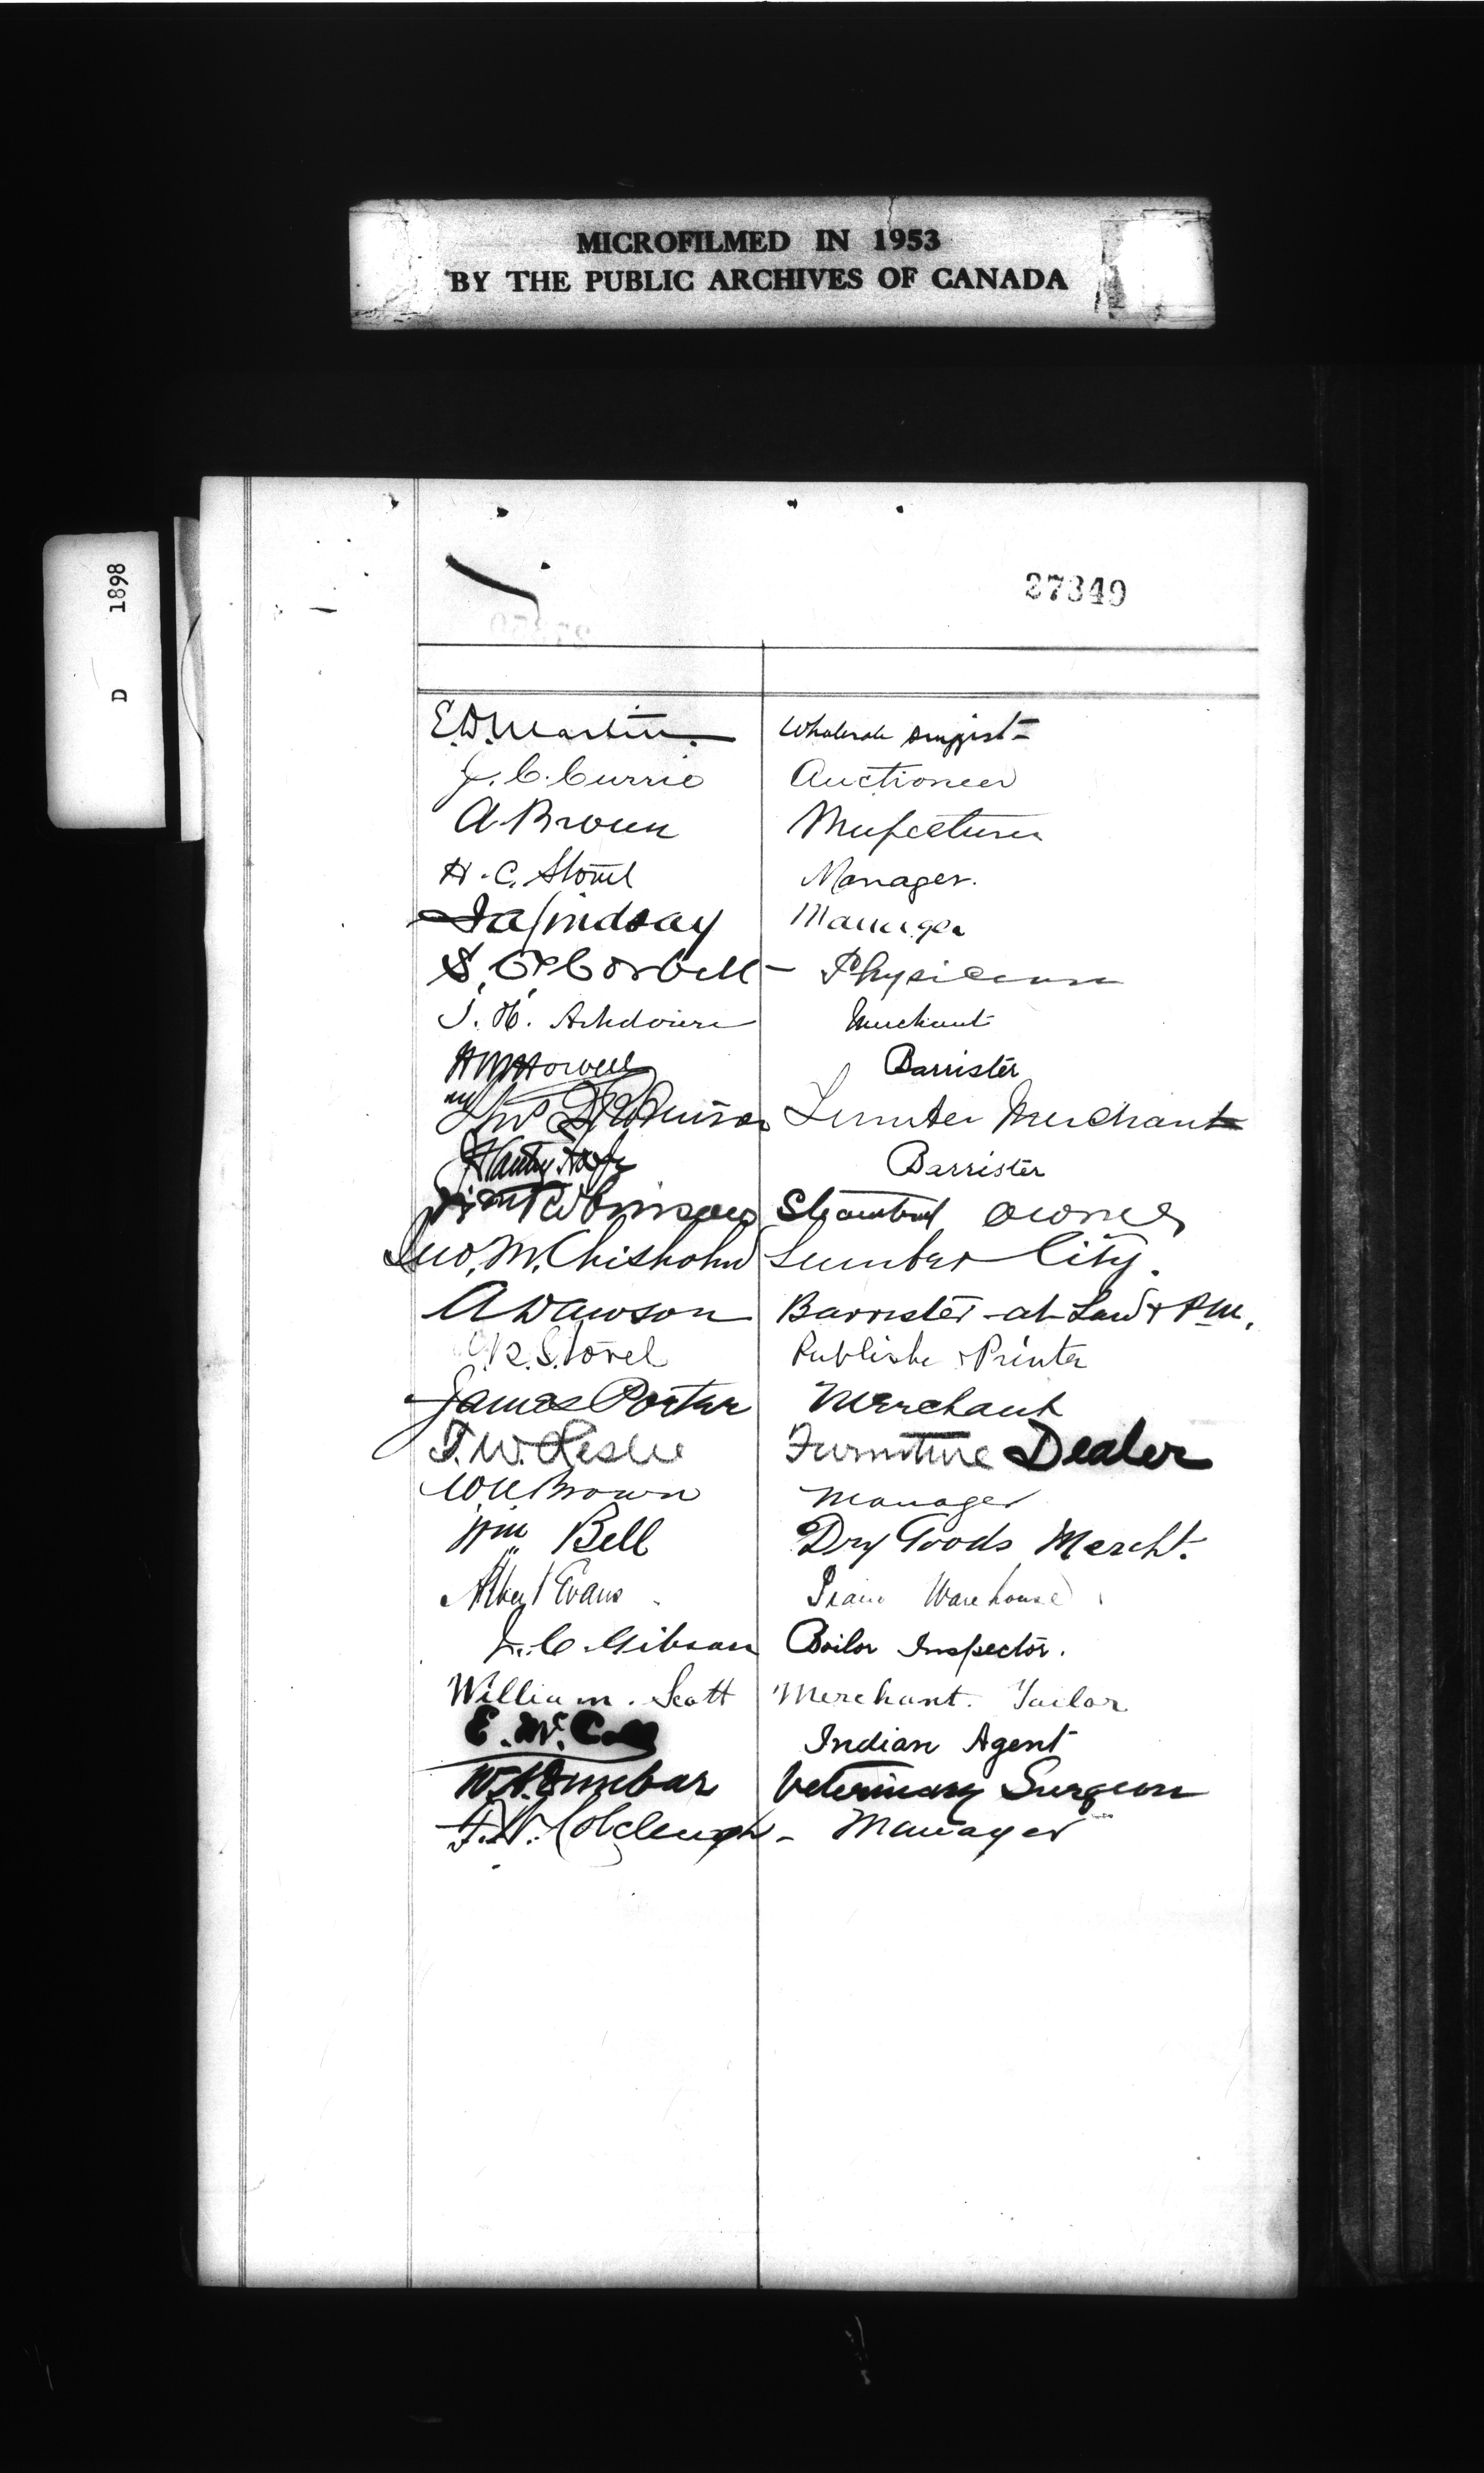 MICROFILMED IN 1953
BY THE PUBLIC ARCHIVES OF CANADA
D 1898
27349
E.D. Martin. Wholesale Druggist
J. C. Currie Auctioneer
A Brown
H. C. Stovel Manager.
Lindsay Manager
S. C. Corbett - Physician
J. H. Ashdown Merchant
H M Howell Barrister
Jno D Robinson Lumber Merchant
Barrister
Wm Robinson Steamboat owner
Jno. M. Chisholm Lumber City.
A Dawson Barrister-at-Law & P.M.
Stovel Publisher & Printer
James Porter Merchant
T. W. Leslie Furniture Dealer
Brown Manager
Wm Bell Dry Goods Mercht.
Albert Evans Piano Warehouse
J. C. Gibson Boiler Inspector.
William. Scott Merchant. Tailor
E. Mc. Indian Agent
W. Dunbar Veterinary Surgeon
F. W. Colcleugh - Manager